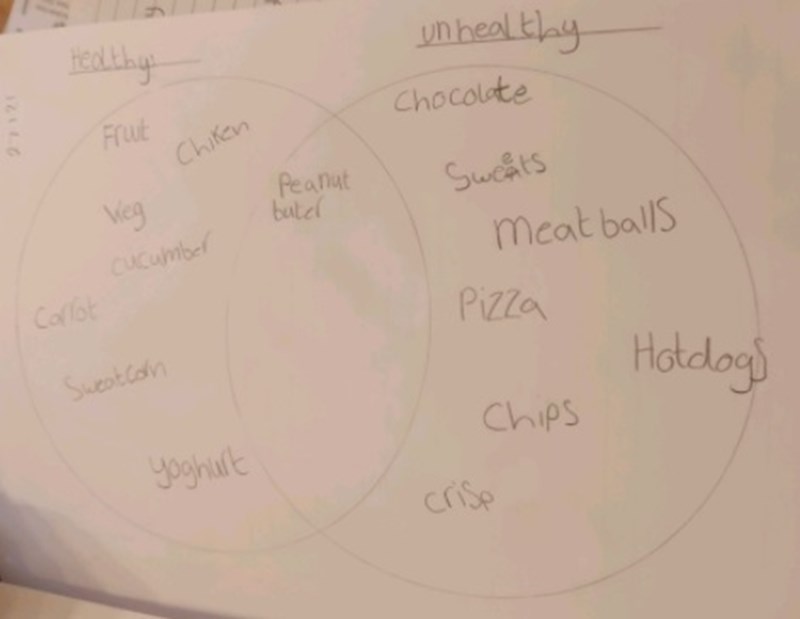 Healthy
unhealthy
Fruit
Chiken
Veg
cucumber
Carrot
Sweatcorn
yoghurt
Peanut
buter
Chocolate
Sweets
Meatballs
Pizza
Hotdogs
Chips
crisp